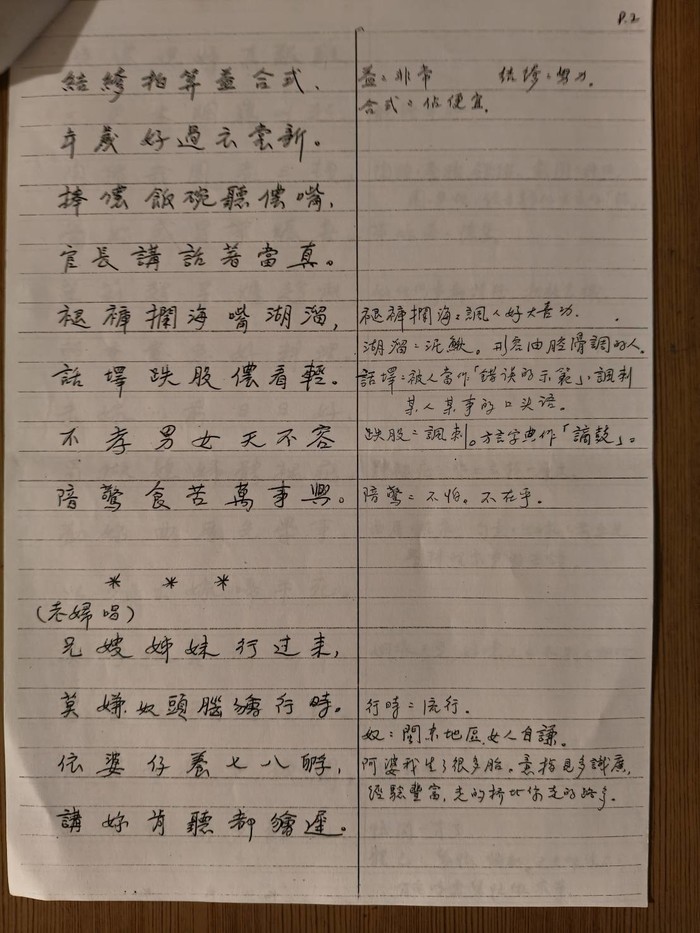 P.2
結絝拍算蓋合式、
蓋：非常 結絝：努力.
合式：佔便宜.
年歲好過衣裳新。
捧儂飯碗聽儂嘴,
官長講話著當真。
褪褲攔海嘴湖溜,
褪褲攔海：諷人好大喜功.
湖溜：泥鰍。形容油腔滑調的人.
話墿跌股儂看輕。
話墿：被人當作「錯误的示範」、諷刺
某人某事的口头语。
不孝男女天不容
跌股：諷刺。方言字典作「謫鼓」。
陪驚食苦萬事興。
陪驚：不怕。不在乎.
* * *
(老婦唱)
兄嫂姊妹行过来,
莫嫌奴頭腦獪行時。
行時：流行.
奴：閩东地區女人自謙.
依婆仔養七八孵,
阿婆我生了很多胎。意指見多識廣,
經驗豐富,走的桥比你走的路多.
講妳肯聽都獪遲。